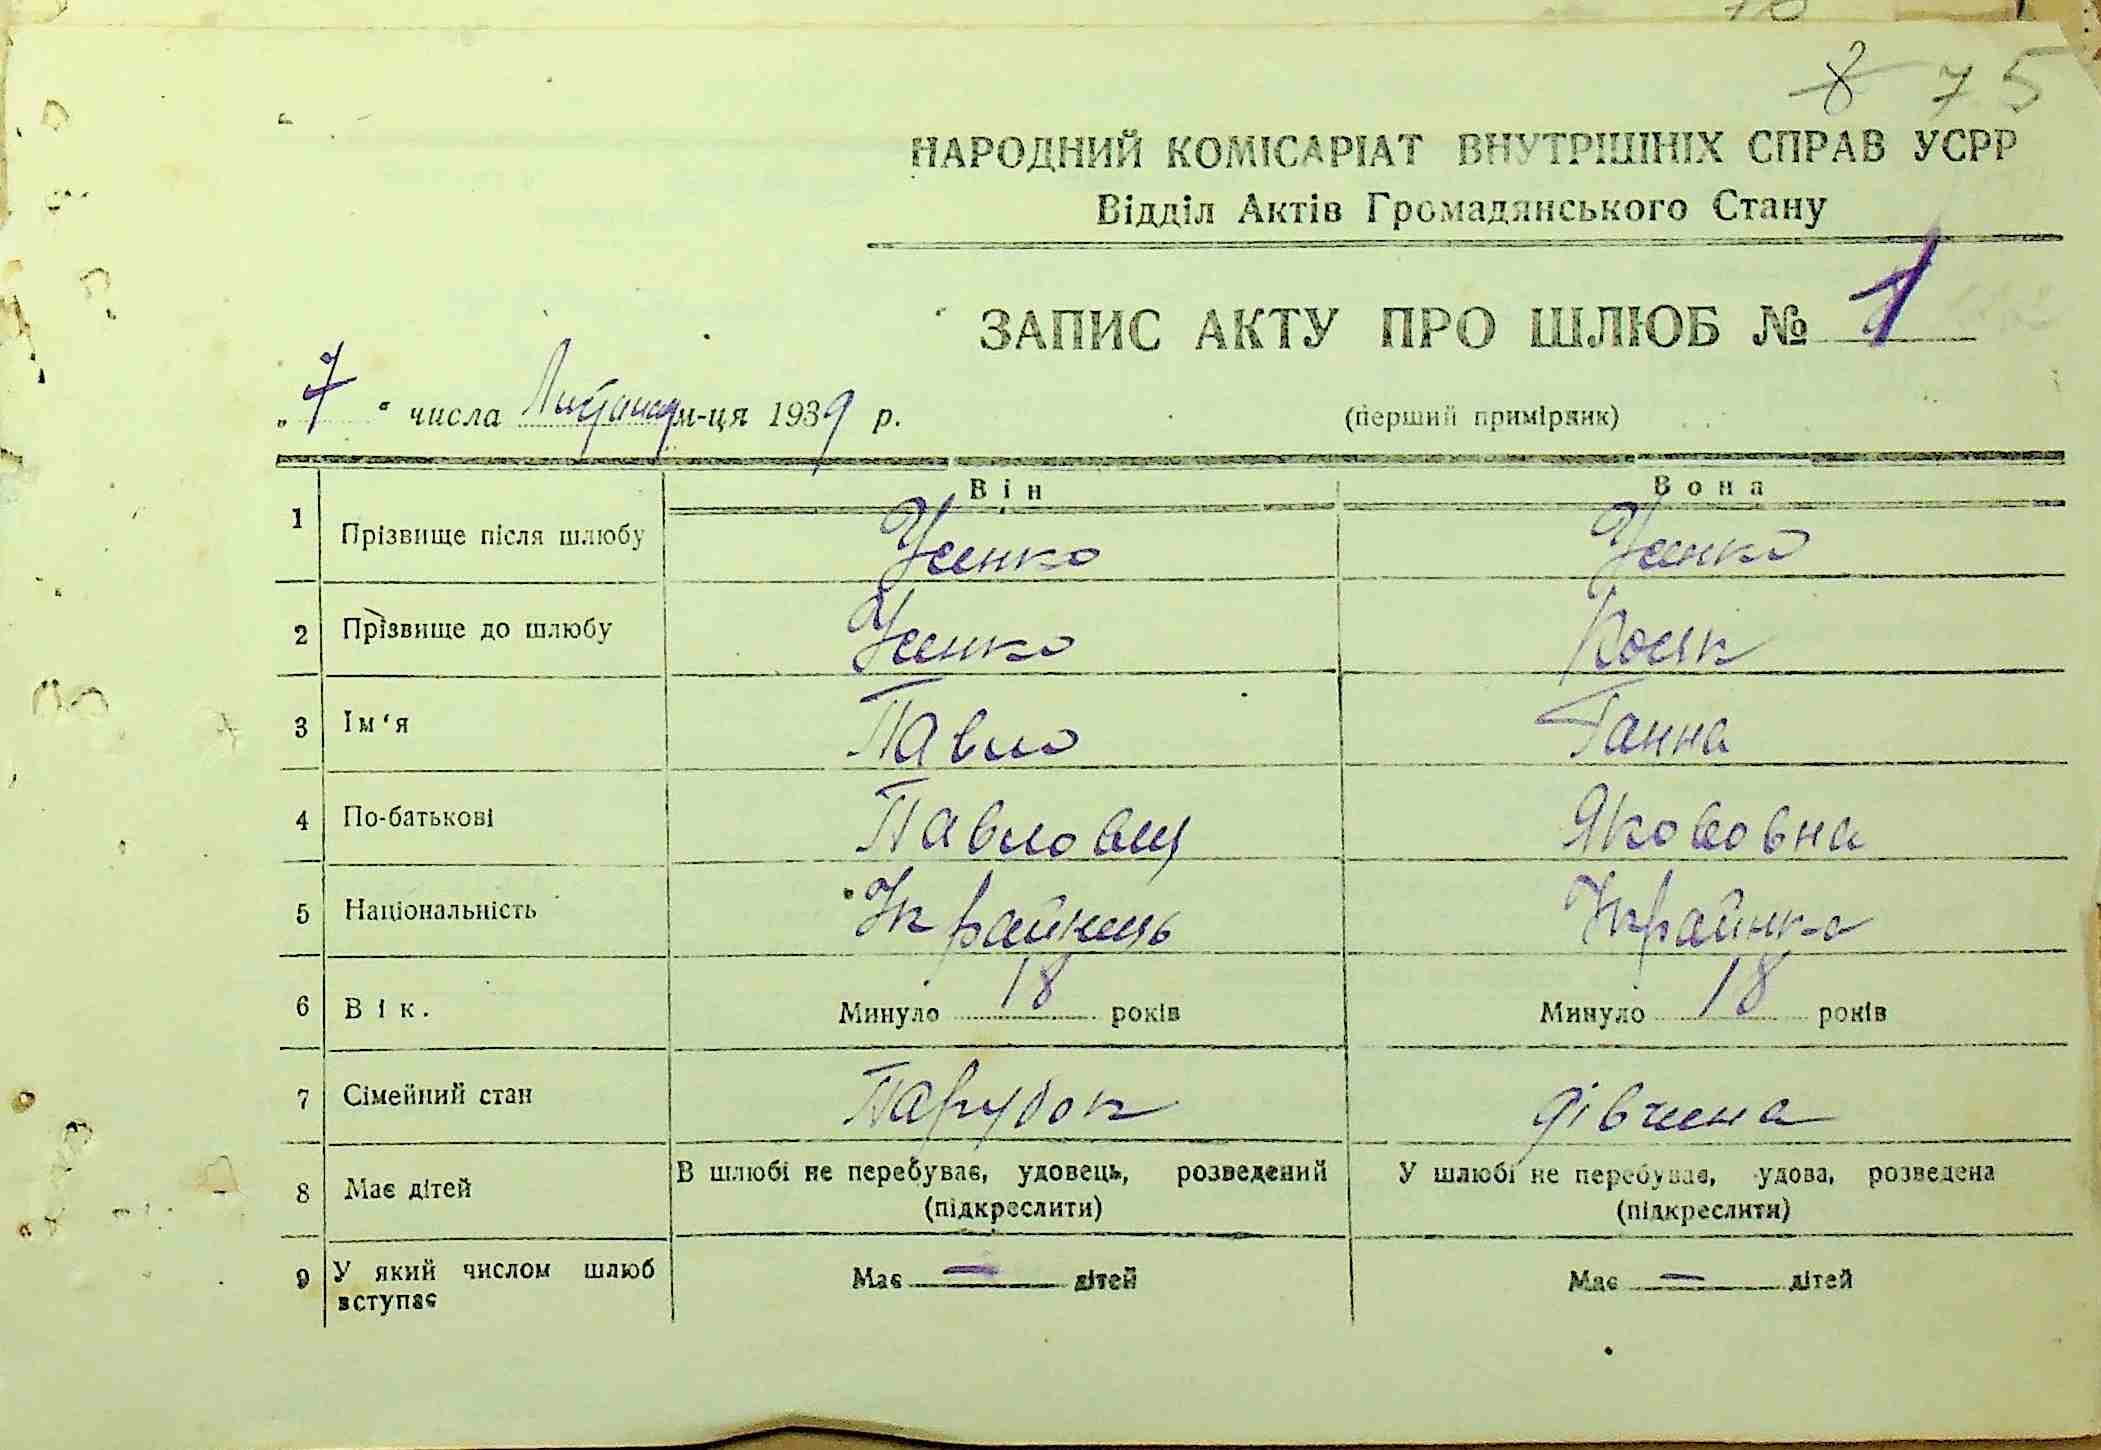 8 75
НАРОДНИЙ КОМІСАРІАТ ВНУТРІШНІХ СПРАВ УСРР
Відділ Актів Громадянського Стану
ЗАПИС АКТУ ПРО ШЛЮБ № 1
„7“ числа м-ця 1939 р. (перший примірник)
Він Вона
1 Прізвище після шлюбу Усенко Усенко
2 Прізвище до шлюбу Усенко Косяк
3 Ім‘я Павло Ганна
4 По-батькові Павлович Якововна
5 Національність Українець Українка
6 Вік. Минуло 18 років Минуло 18 років
7 Сімейний стан Парубок дівчина
8 Має дітей В шлюбі не перебуває, удовець, розведений (підкреслити) У шлюбі не перебуває, удова, розведена (підкреслити)
9 У який числом шлюб вступає Має — дітей Має — дітей